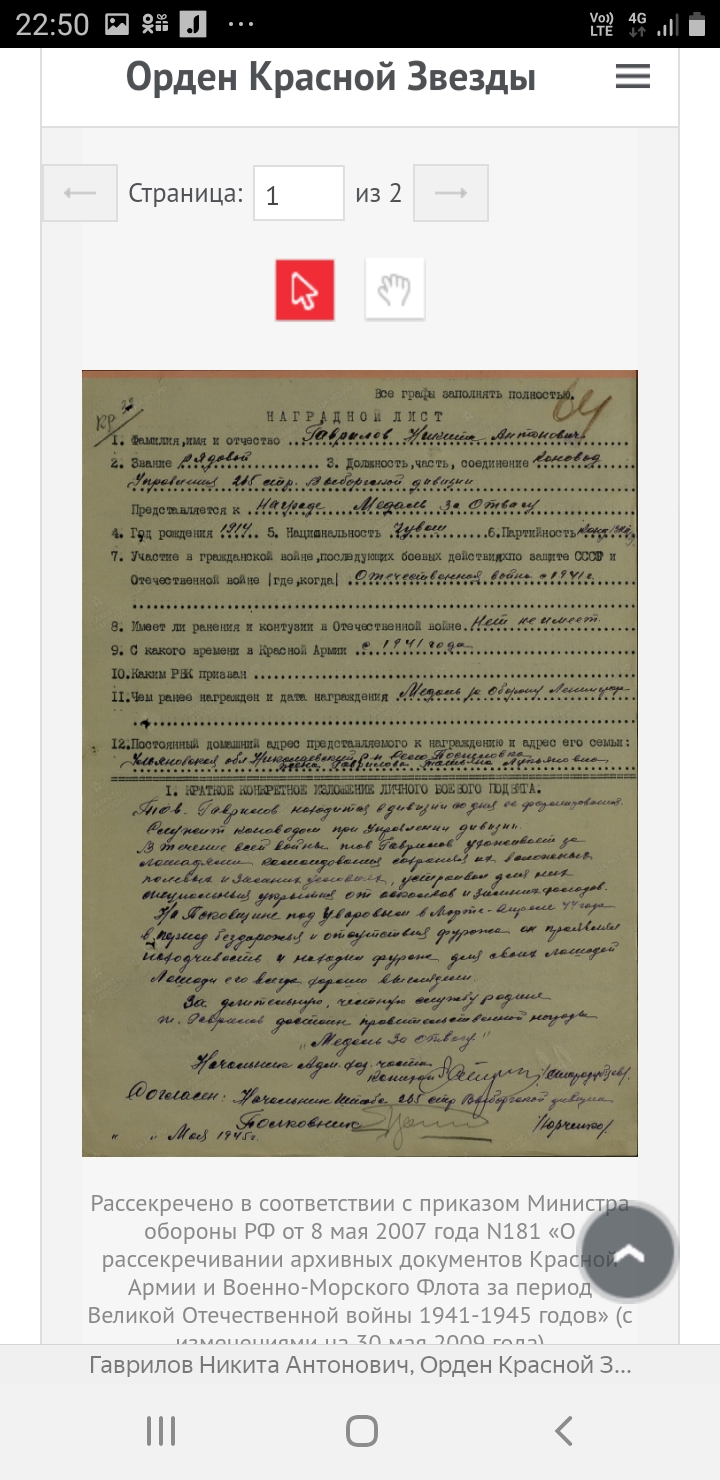 22:50
Vo)) LTE 4G
Орден Красной Звезды
Страница: 1 из 2
Все графы заполнять полностью.
64
НАГРАДНОЙ ЛИСТ
1. Фамилия,имя и отчество Гаврилов Никита Антонович
2. Звание рядовой 3. Должность,часть, соединение коновод
Управления 265 стр. Выборгской дивизии
Представляется к Награде Медаль За Отвагу
4. Год рождения 1914 5. Национальность Чуваш 6.Партийность
7. Участие в гражданской войне,последующих боевых действиях по защите СССР и
Отечественной войне |где,когда| Отечественная война с 1941 г.
8. Имеет ли ранения и контузии в Отечественной войне Нет не имеет
9. С какого времени в Красной Армии с 1941 года
10.Каким РВК призван
11.Чем ранее награжден и дата награждения Медаль за Оборону Ленинграда
12.Постоянный домашний адрес представляемого к награждению и адрес его семьи:
Ульяновская обл Николаевский р-н село
жена Гаврилова Татьяна
I. КРАТКОЕ КОНКРЕТНОЕ ИЗЛОЖЕНИЕ ЛИЧНОГО БОЕВОГО ПОДВИГА.
Тов. Гаврилов находится в дивизии со дня ее формирования.
Служит коноводом при Управлении дивизии.
В течение всей войны тов Гаврилов ухаживает за
лошадями командования сохраняя их в
полевых и зимних условиях, устраивая для них
специальные укрытия от осколков и зимних холодов.
На Псковщине под Уваровым в Марте-Апреле 44 года
в период бездорожья и отсутствия фуража он проявлял
находчивость и находил фураж для своих лошадей
Лошади его всегда хорошо выглядели.
За длительную, честную службу родине
т. Гаврилов достоин правительственной награды
"Медаль За отвагу"
Начальник Адм. хоз. части
Капитан
Согласен: Начальник Штаба 265 стр Выборгской дивизии
Полковник /Юрченко/
" " Мая 1945г.
Рассекречено в соответствии с приказом Министра
обороны РФ от 8 мая 2007 года N181 «О
рассекречивании архивных документов Красной
Армии и Военно-Морского Флота за период
Великой Отечественной войны 1941-1945 годов» (с
изменениями на 30 мая 2009 года)
Гаврилов Никита Антонович, Орден Красной З...